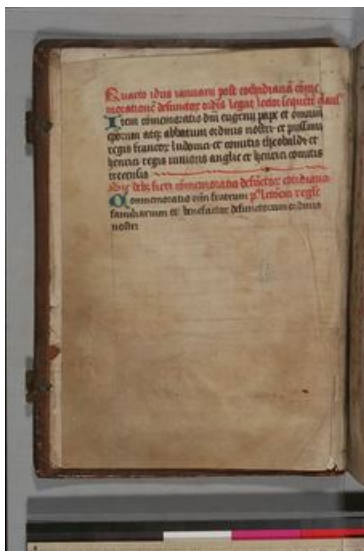 Quarto idus ianuarii post cotidianā cōme
moratione defunctor ordīs legat lector sequētē clausl
Item cōmemoratio dm̄ eugenij pape et omnium
eporum atq; abbatum ordinis nostri et piissimi
regis francor ludouici et comitis theobaldi et
henrici regis iunioris anglie et henrici comitis
trecensis
debz fieri cōmemoratio defūctor cotidiana
Commemoratio oīm fratrum
familiarium et benefactor defunctorum ordinis
nostri